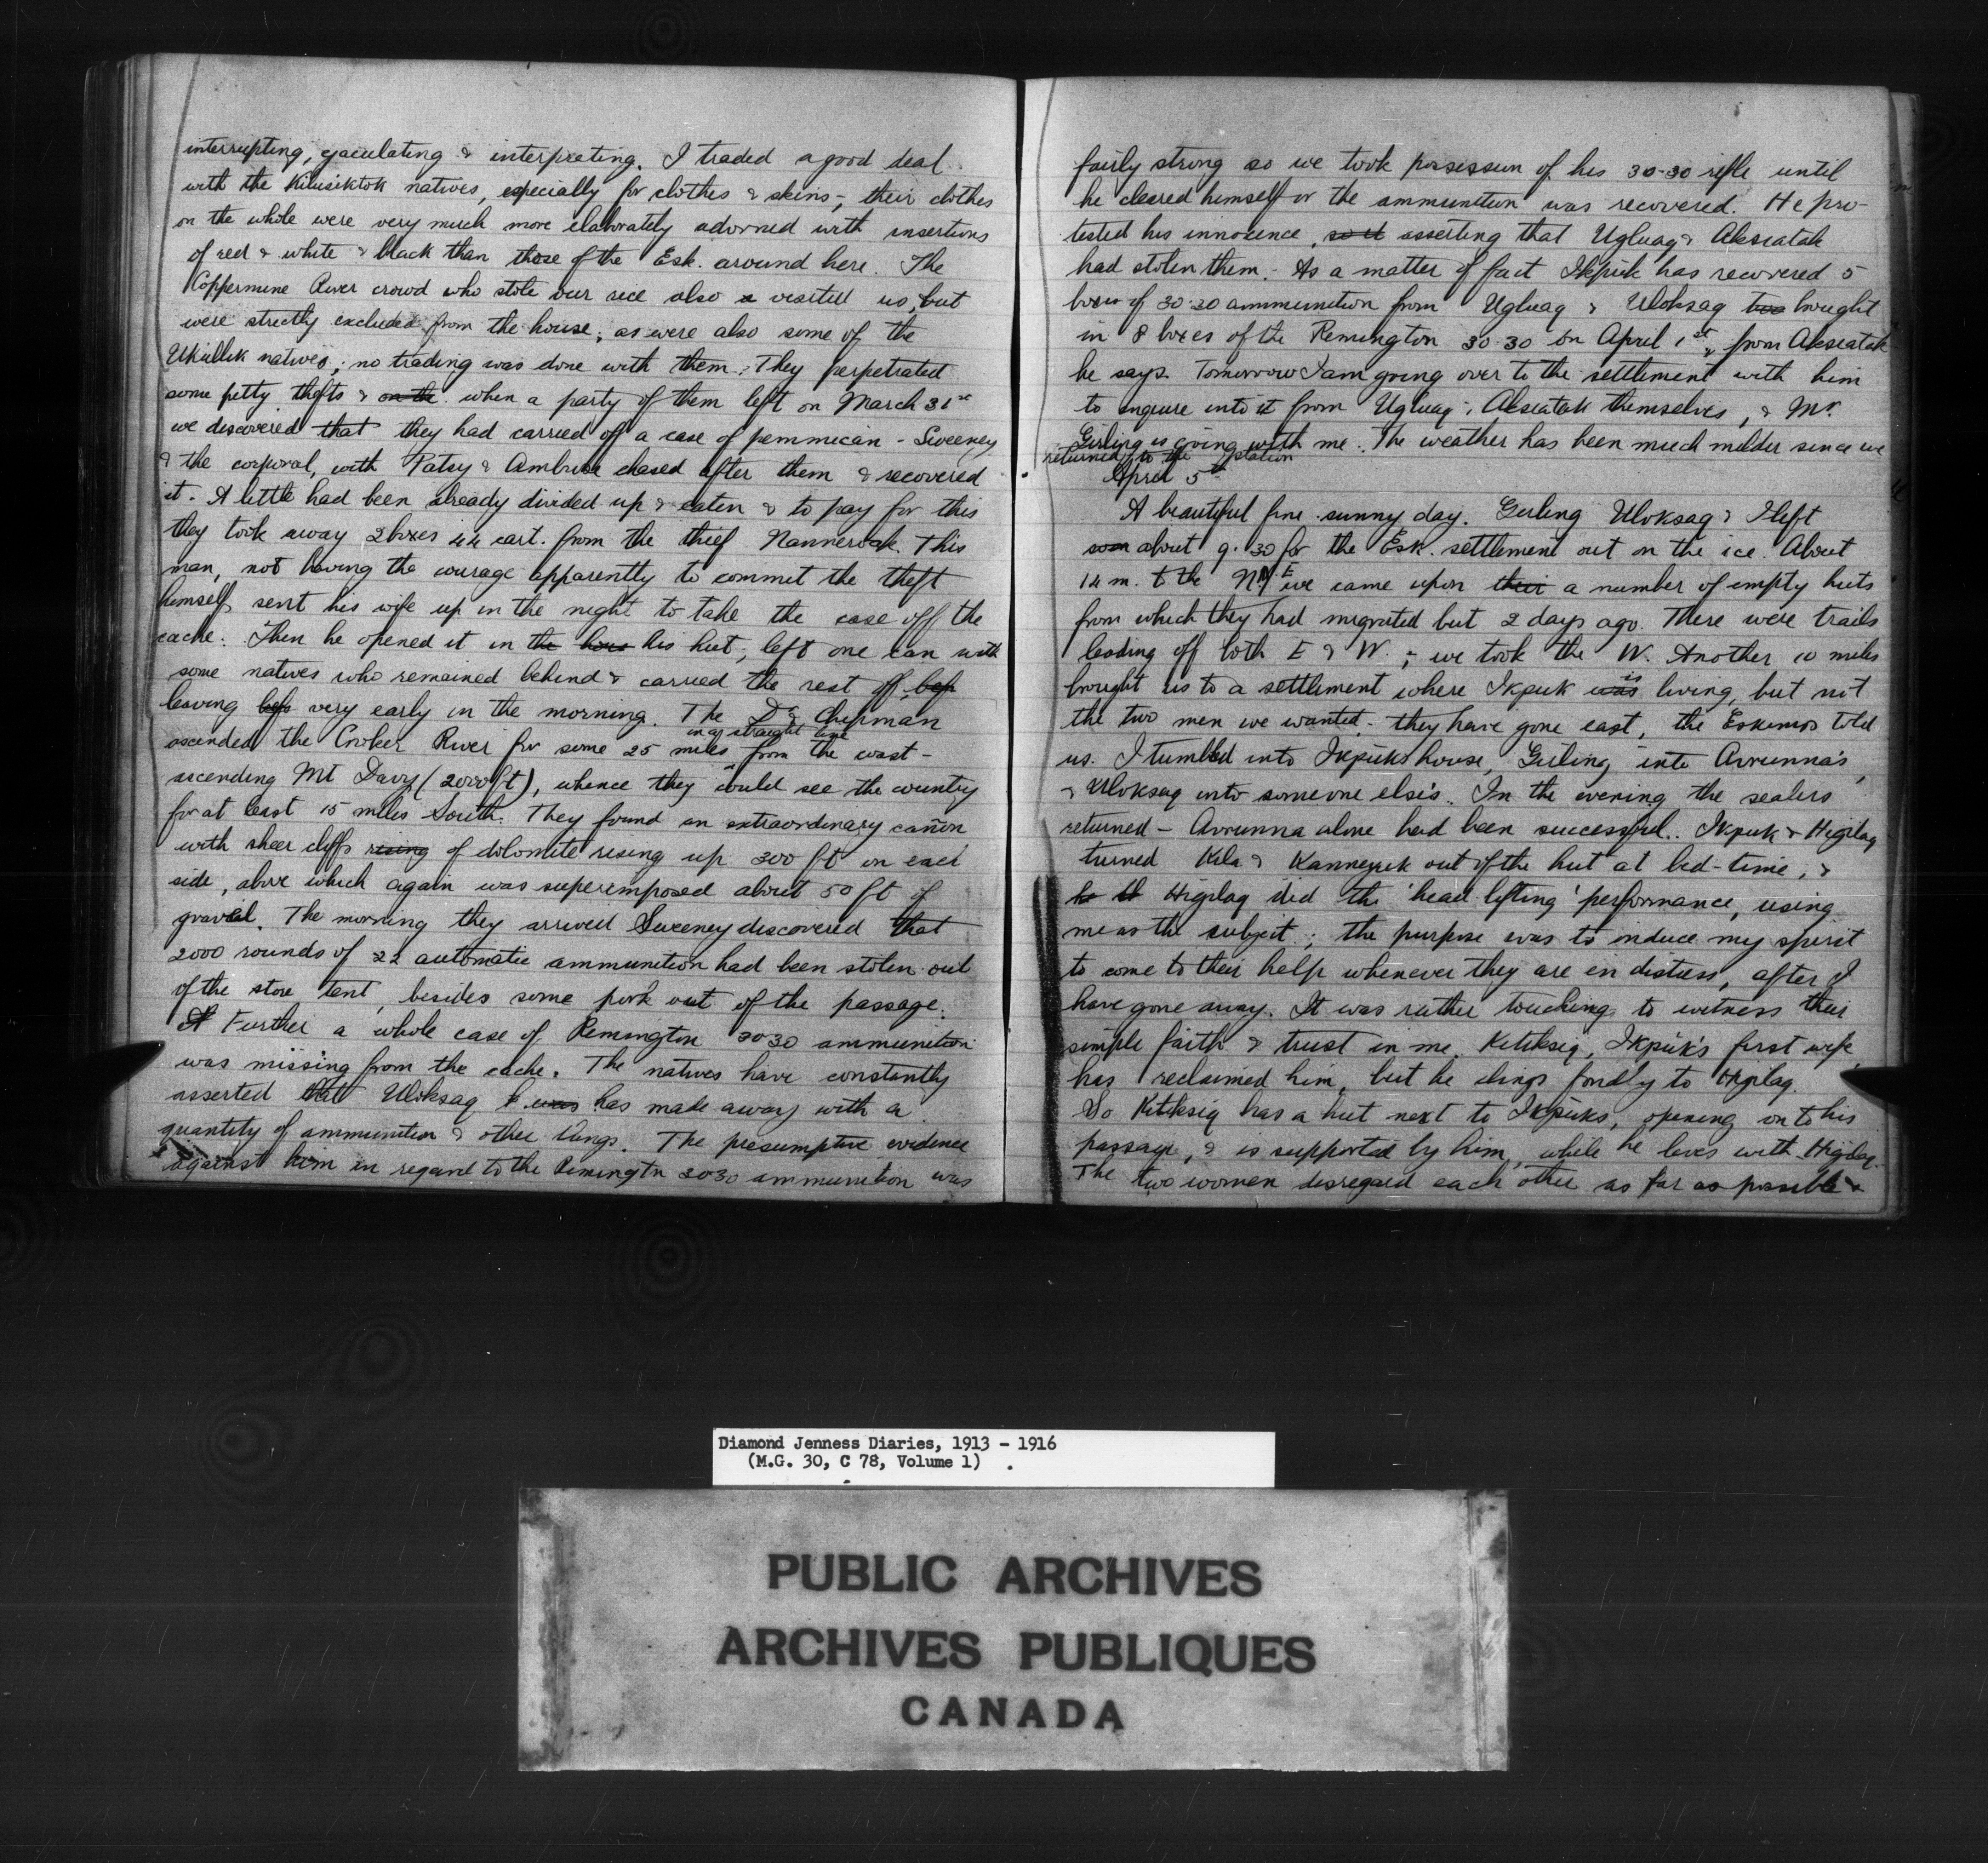 interrupting, ejaculating & interpreting. I traded a good deal
with the Kilusiktok natives, especially for clothes & skins; their clothes
on the whole were very much more elaborately adorned with insertions
of red & white & black than those of the Esk. around here. The
Coppermine River crowd who stole our sled also visited us, but
were strictly excluded from the house; as were also some of the
natives; no trading was done with them. They perpetrated
some petty thefts & on the when a party of them left on March 31st
we discovered that they had carried off a case of pemmican - Sweeney
& the corporal, with Patsy & Ambrose chased after them & recovered
it. A little had been already divided up & eaten & to pay for this
they took away 2 boxes 44 cart. from the thief Nanneroak. This
man, not having the courage apparently to commit the theft
himself, sent his wife up in the night to take the case off the
cache. Then he opened it in the hous his hut, left one can with
some natives who remained behind & carried the rest off,
leaving very early in the morning. The Dr & Chipman
in a straight line
ascended the Croker River for some 25 miles from the coast -
ascending Mt Davy (2000 ft), whence they could see the country
for at least 15 miles South. They found an extraordinary cañon
with sheer cliffs rising of dolomite rising up 300 ft on each
side, above which again was superimposed about 50 ft of
gravel. The morning they arrived Sweeney discovered that
2000 rounds of 22 automatic ammunition had been stolen out
of the store tent, besides some pork out of the passage.
Further a whole case of Remington 3030 ammunition
was missing from the cache. The natives have constantly
asserted that Uloksaq was has made away with a
quantity of ammunition & other things. The presumptive evidence
against him in regard to the Remington 3030 ammunition was
fairly strong so we took possession of his 30-30 rifle until
he cleared himself or the ammunition was recovered. He pro-
tested his innocence, so it asserting that Ugluaq & Akseatak
had stolen them. As a matter of fact Ikpuk has recovered 5
boxes of 30-30 ammunition from Ugluaq & Uloksaq too brought
in 8 boxes of the Remington 30-30 on April 1st, from Akseatak
he says. Tomorrow I am going over to the settlement with him
to inquire into it from Ugluaq & Akseatak themselves, & Mr.
Girling is going with me. The weather has been much milder since we
returned to the station
April 5th
A beautiful fine sunny day. Girling Uloksaq & I left
soon about 9.30 for the Esk. settlement out on the ice. About
14 m. to the N E we came upon their a number of empty huts
from which they had migrated but 2 days ago. There were trails
leading off both E & W.; we took the W. Another 10 miles
brought us to a settlement where Ikpuk was is living, but not
the two men we wanted; they have gone east, the Eskimos told
us. I tumbled into Ikpuk's house, Girling into Avrunna's,
& Uloksaq into someone else's. In the evening the sealers
returned - Avrunna alone had been successful. Ikpuk & Higilaq
turned Kila & Kanneyuk out of the hut at bed-time, &
Higilaq did the 'head-lifting' performance, using
me as the subject; the purpose was to induce my spirit
to come to their help whenever they are in distress, after I
have gone away. It was rather touching to witness their
simple faith & trust in me. Kitiksiq, Ikpuk's first wife,
has reclaimed him, but he clings fondly to Higilaq.
So Kitiksiq has a hut next to Ikpuks, opening on to his
passage, & is supported by him, while he lives with Higilaq.
The two women disregard each other as far as possible &
Diamond Jenness Diaries, 1913 - 1916
(M.G. 30, C 78, Volume 1)
PUBLIC ARCHIVES
ARCHIVES PUBLIQUES
CANADA